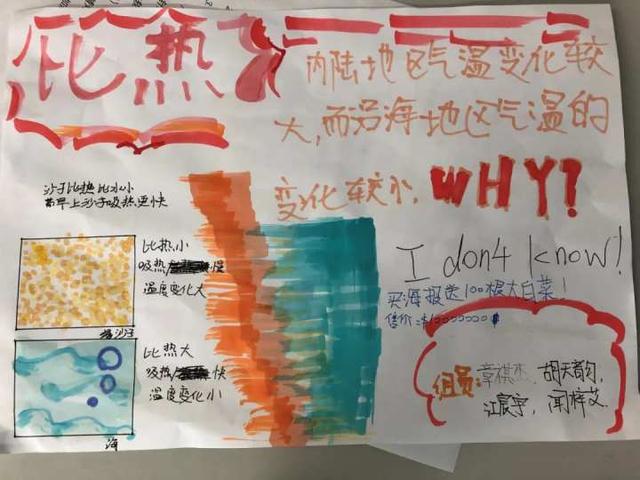 比热
内陆地区气温变化较
大,而沿海地区气温的
变化较小, WHY?
沙子比热比水小
故早上沙子吸热更快
I don4 know!
买海报送100根大白菜!
比热小
吸热 慢
温度变化大
沙子
比热大
吸热 快
温度变化小
海
组员:章祺杰、胡天韵、
江宸宇、闻梓艾